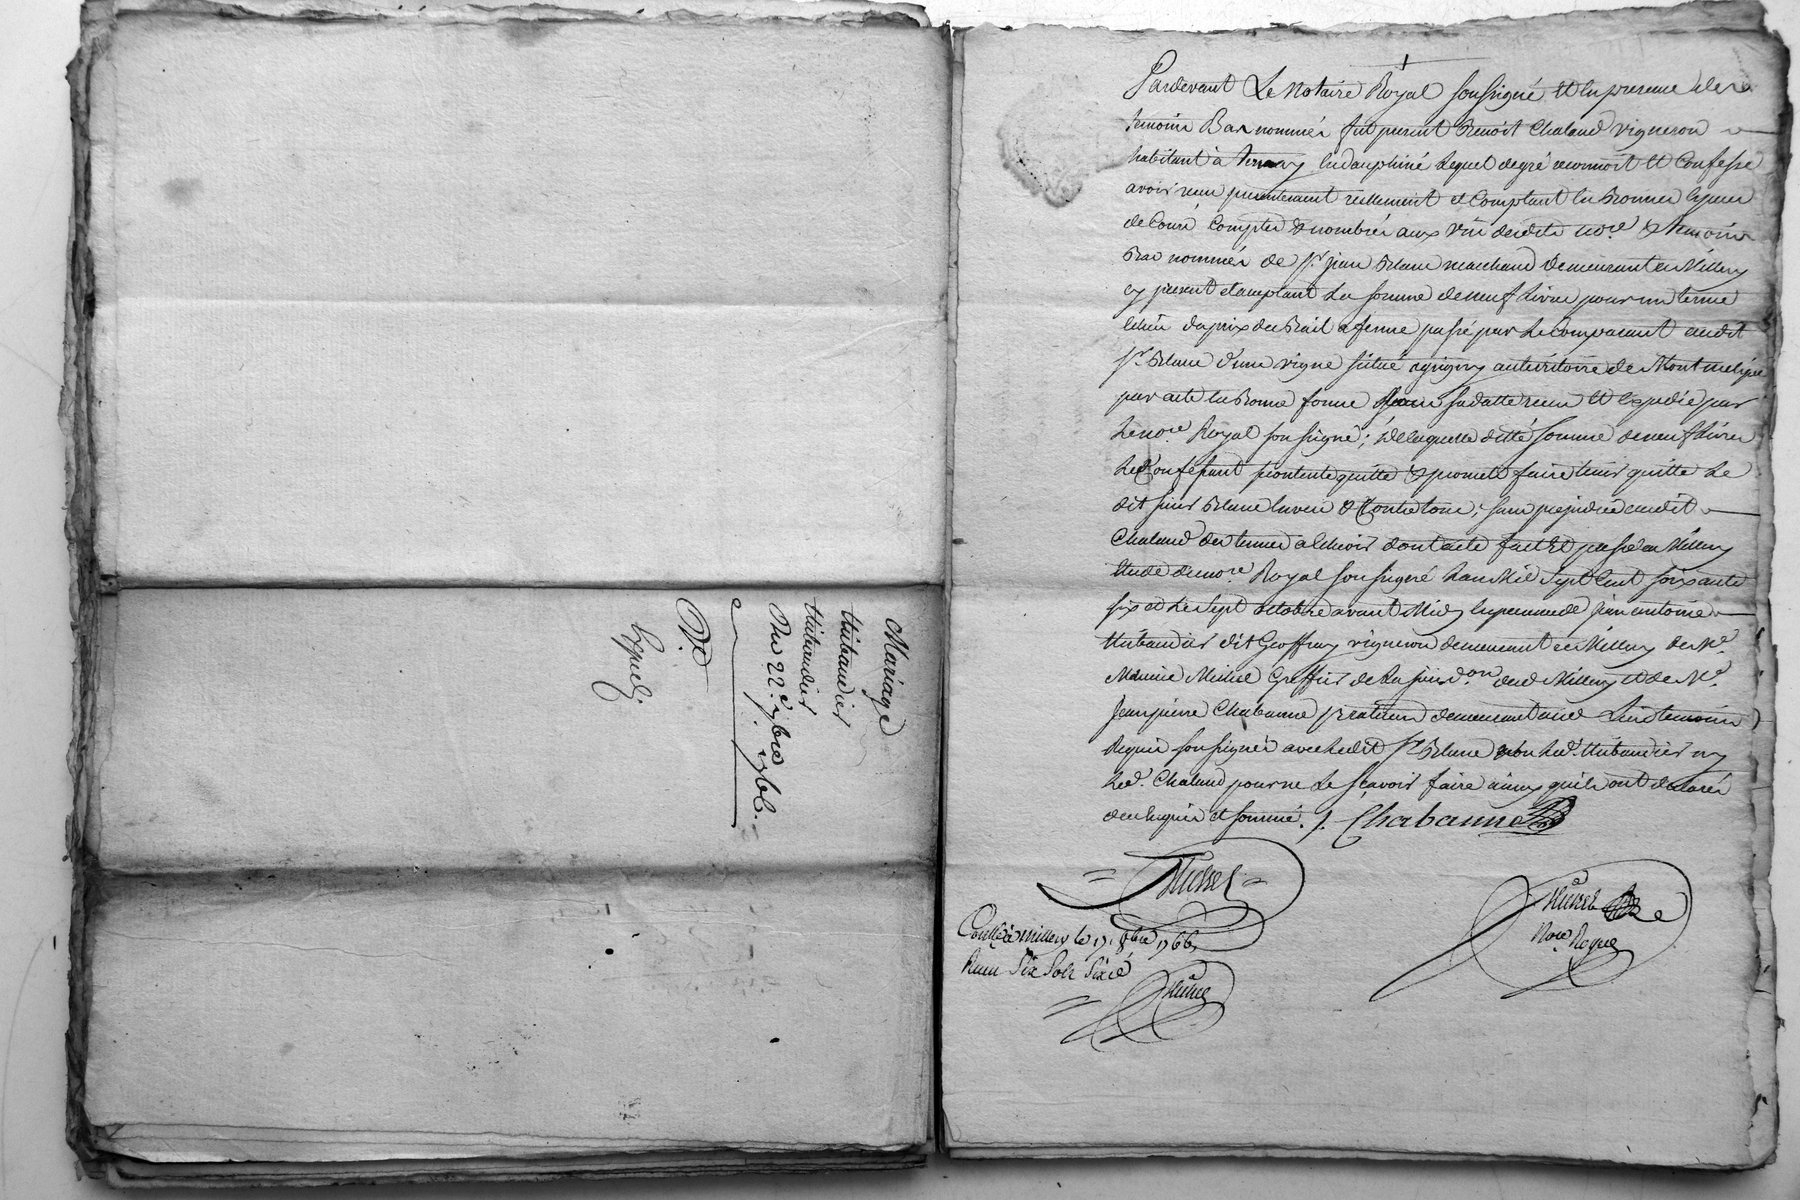 Mariage
thibaudier
thibaudier
Du 22.e 7bre 1766.
Expedie.
Pardevant Le Notaire Royal soussigné et en presence des
temoins Bas nommés fut present Benoit Chaland vigneron
habitant à en dauphiné Lequel de gré reconnoit et Confesse
avoir reçu presentement reellement et Comptant en Bonnes especes
de Cours Comptés & nombrés aux vüe desdits no.re & temoins
Bas nommés de S.r jean Blanc marchand demeurant en Millery
cy present et acceptant La somme de neuf Livres pour un terme
echu du prix du Bail a ferme passé par Le Comparant audit
S.r Blanc d'une vigne située a grigny au territoire de Mont
par acte en Bonne forme sa datte reçu et expedié par
Le no.re Royal soussigné; de laquelle ditte somme de neuf Livres
Le Confessant se contente quitte & promet faire tenir quitte Le
dit sieur Blanc envers & Contre tous; sans prejudice audit
Chaland des termes a Echeoir dont acte fait Et passé en Millery
Etude du no.re Royal soussigné L'an Mil Sept Cent soixante
six et Le Sept octobre avant Midy en presence de jean antoine
thibaudier dit Geoffray vigneron demeurant en Millery de M.e
Michel Greffier de La jurid.on dud Millery et de M.e
Jean pierre Chabanne praticien demeurant aud Lieu temoins
Requis soussignés avec Ledit S.r Blanc non Led. thibaudier ny
Led. Chaland pour ne Le sçavoir faire ainsy quils ont declarés
de ce Requis et sommé. J. Chabanne
Michel
Michel
No.re Royal
Conllé à millery le 17. 8bre 1766
Reçu Six Sols Six d
Michel